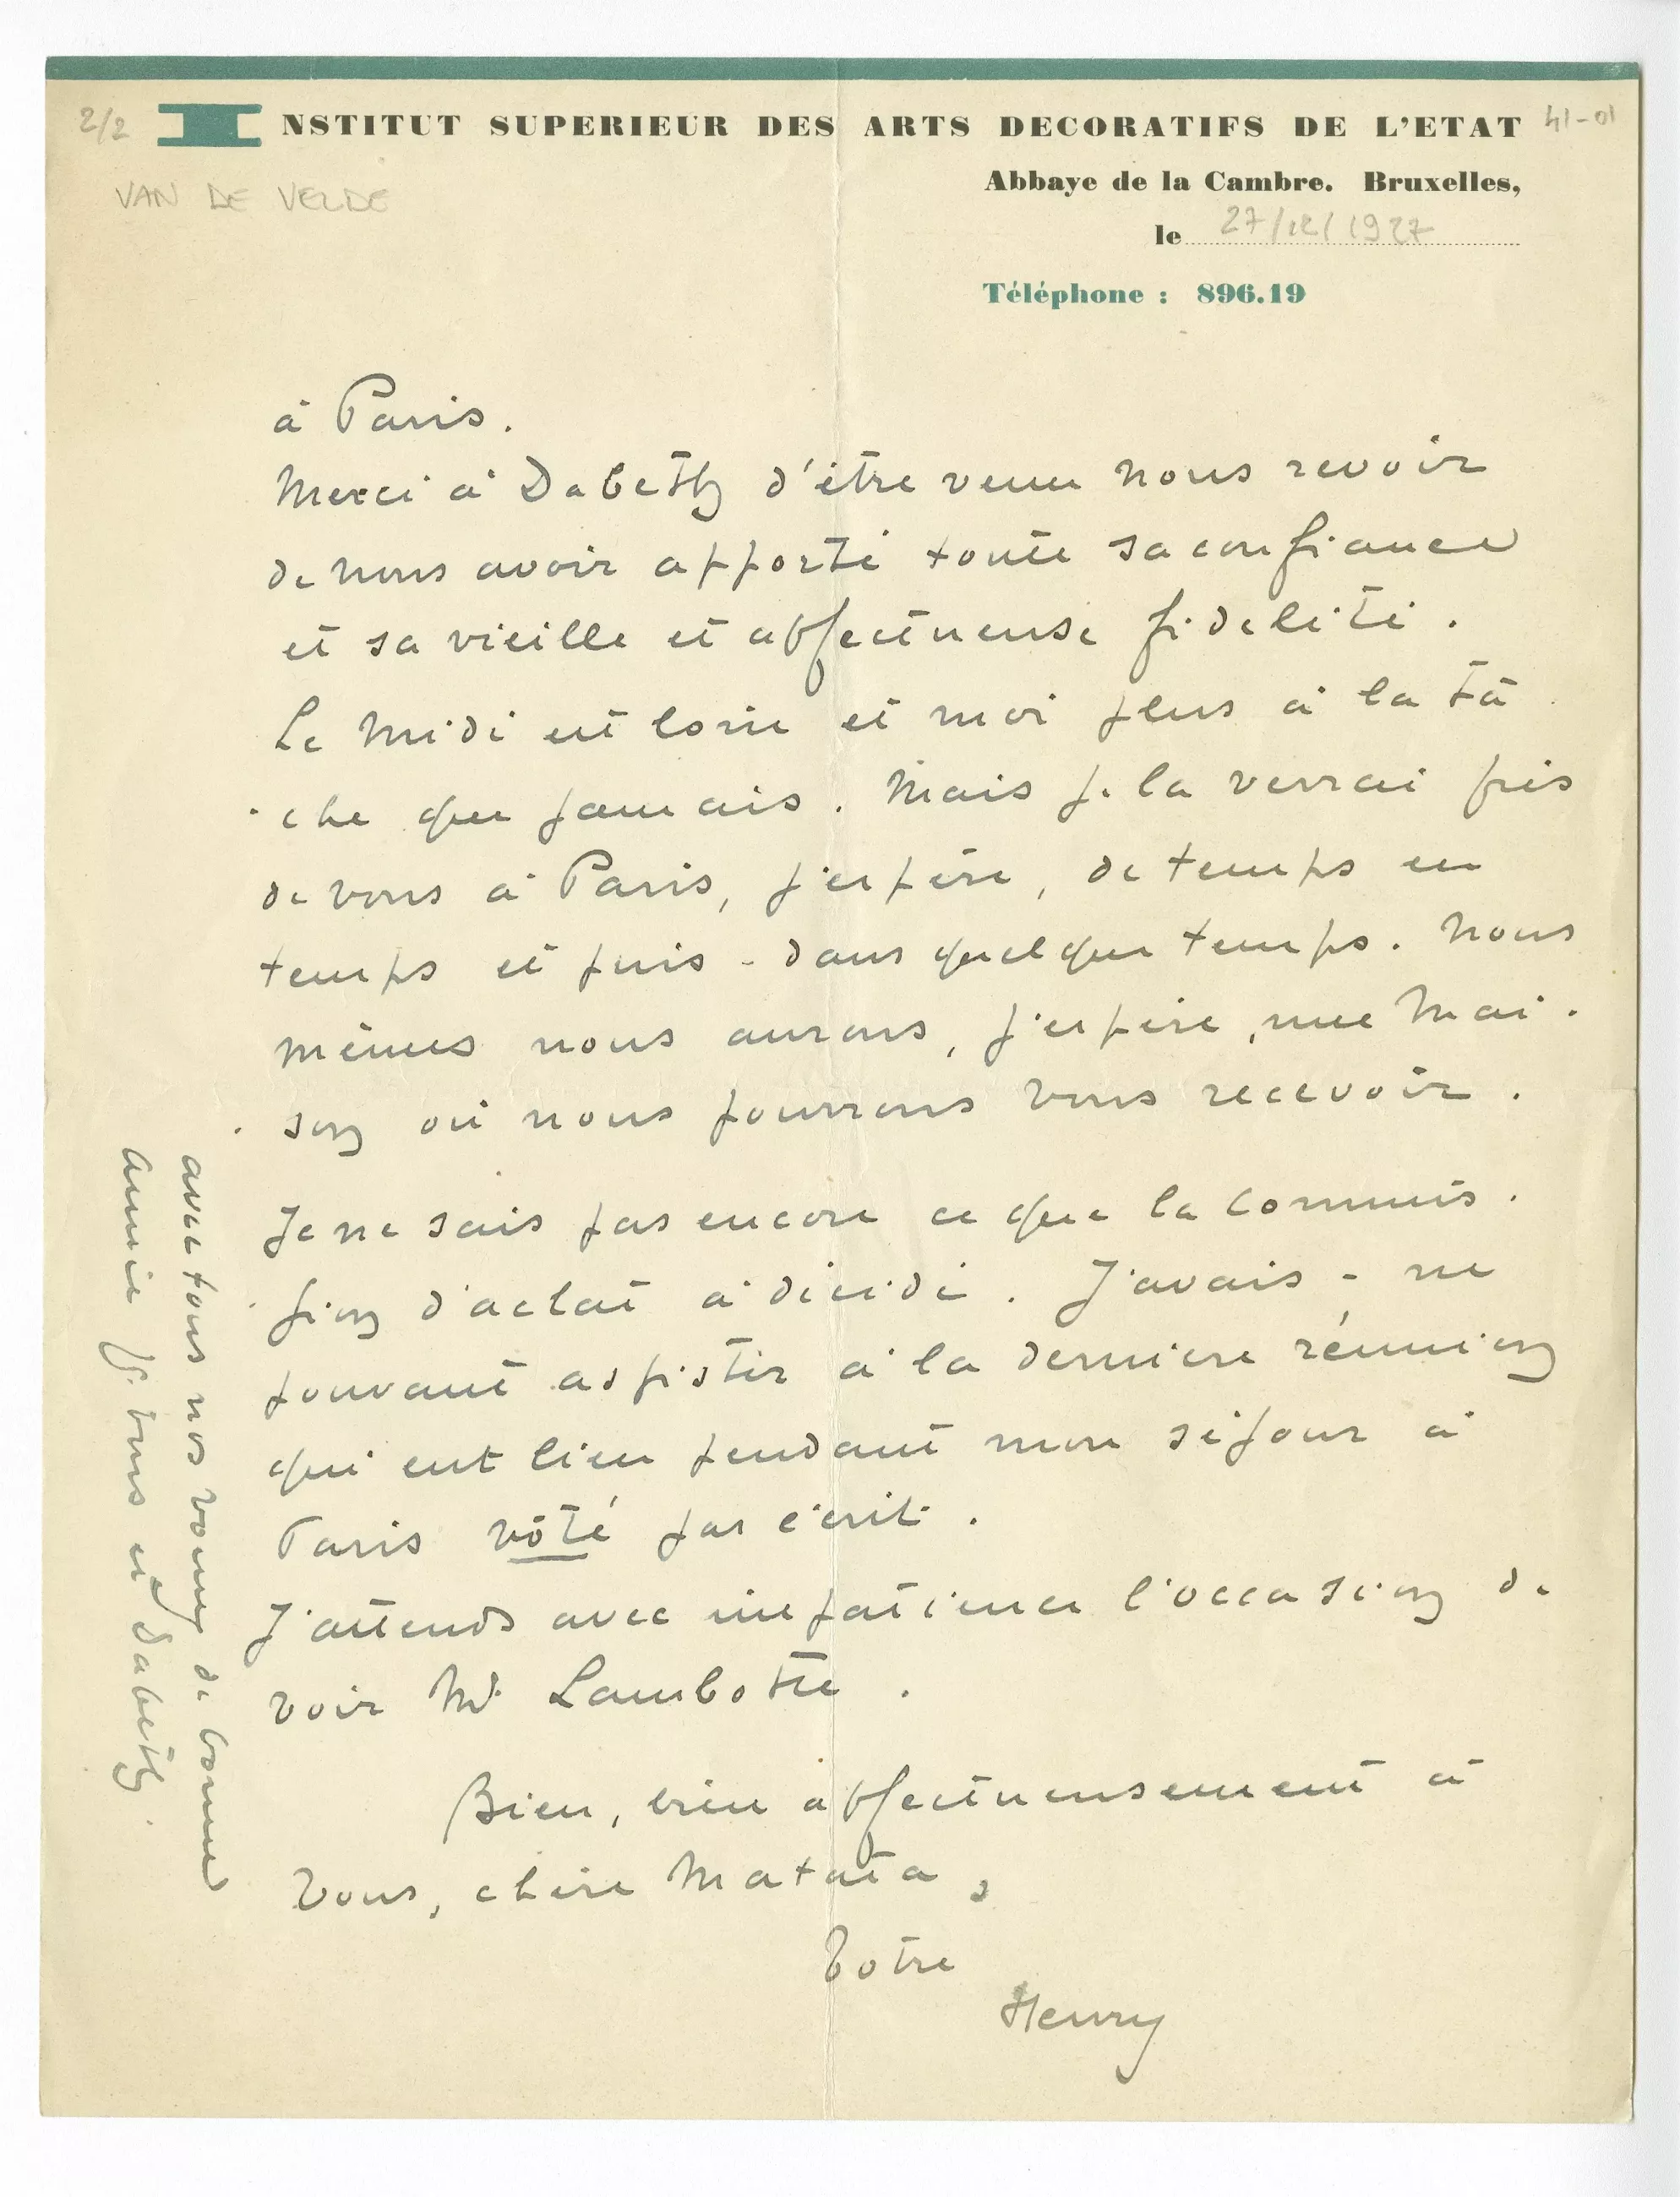 2/2
INSTITUT SUPERIEUR DES ARTS DECORATIFS DE L'ETAT
41-01
VAN DE VELDE
Abbaye de la Cambre. Bruxelles,
le 27/12/1927
Téléphone : 896.19
à Paris.
Merci à Dabeth d'être venu nous revoir
de nous avoir apporté toute sa confiance
et sa vieille et affectueuse fidélité.
Le Midi est loin et moi plus à la tâ
-che que jamais. Mais je la verrai près
de vous à Paris, j'espère, de temps en
temps et puis - dans quelque temps. Nous
mêmes nous aurons, j'espère, une mai-
-son où nous pourrons vous recevoir.
Je ne sais pas encore ce que la commis-
-sion d'achat a décidé. J'avais - ne
pouvant assister à la dernière réunion
qui eut lieu pendant mon séjour à
Paris vôté par écrit.
J'attends avec impatience l'occasion de
voir Mr Lambotte.
Bien, bien affectueusement à
vous, chère Matata,
Votre
Henry
avec tous nos voeux de bonne
année p. vous et Dabeth.